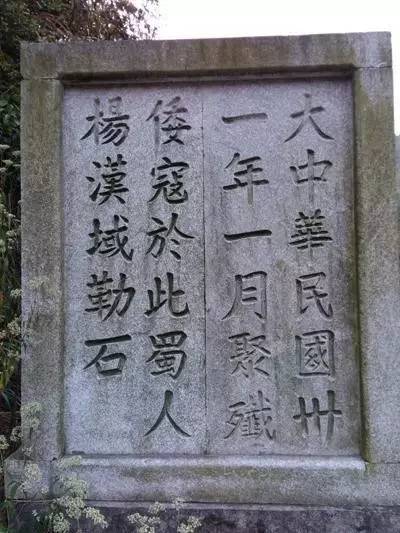 大中華民國卅
一年一月聚殲
倭寇於此蜀人
楊漢域勒石